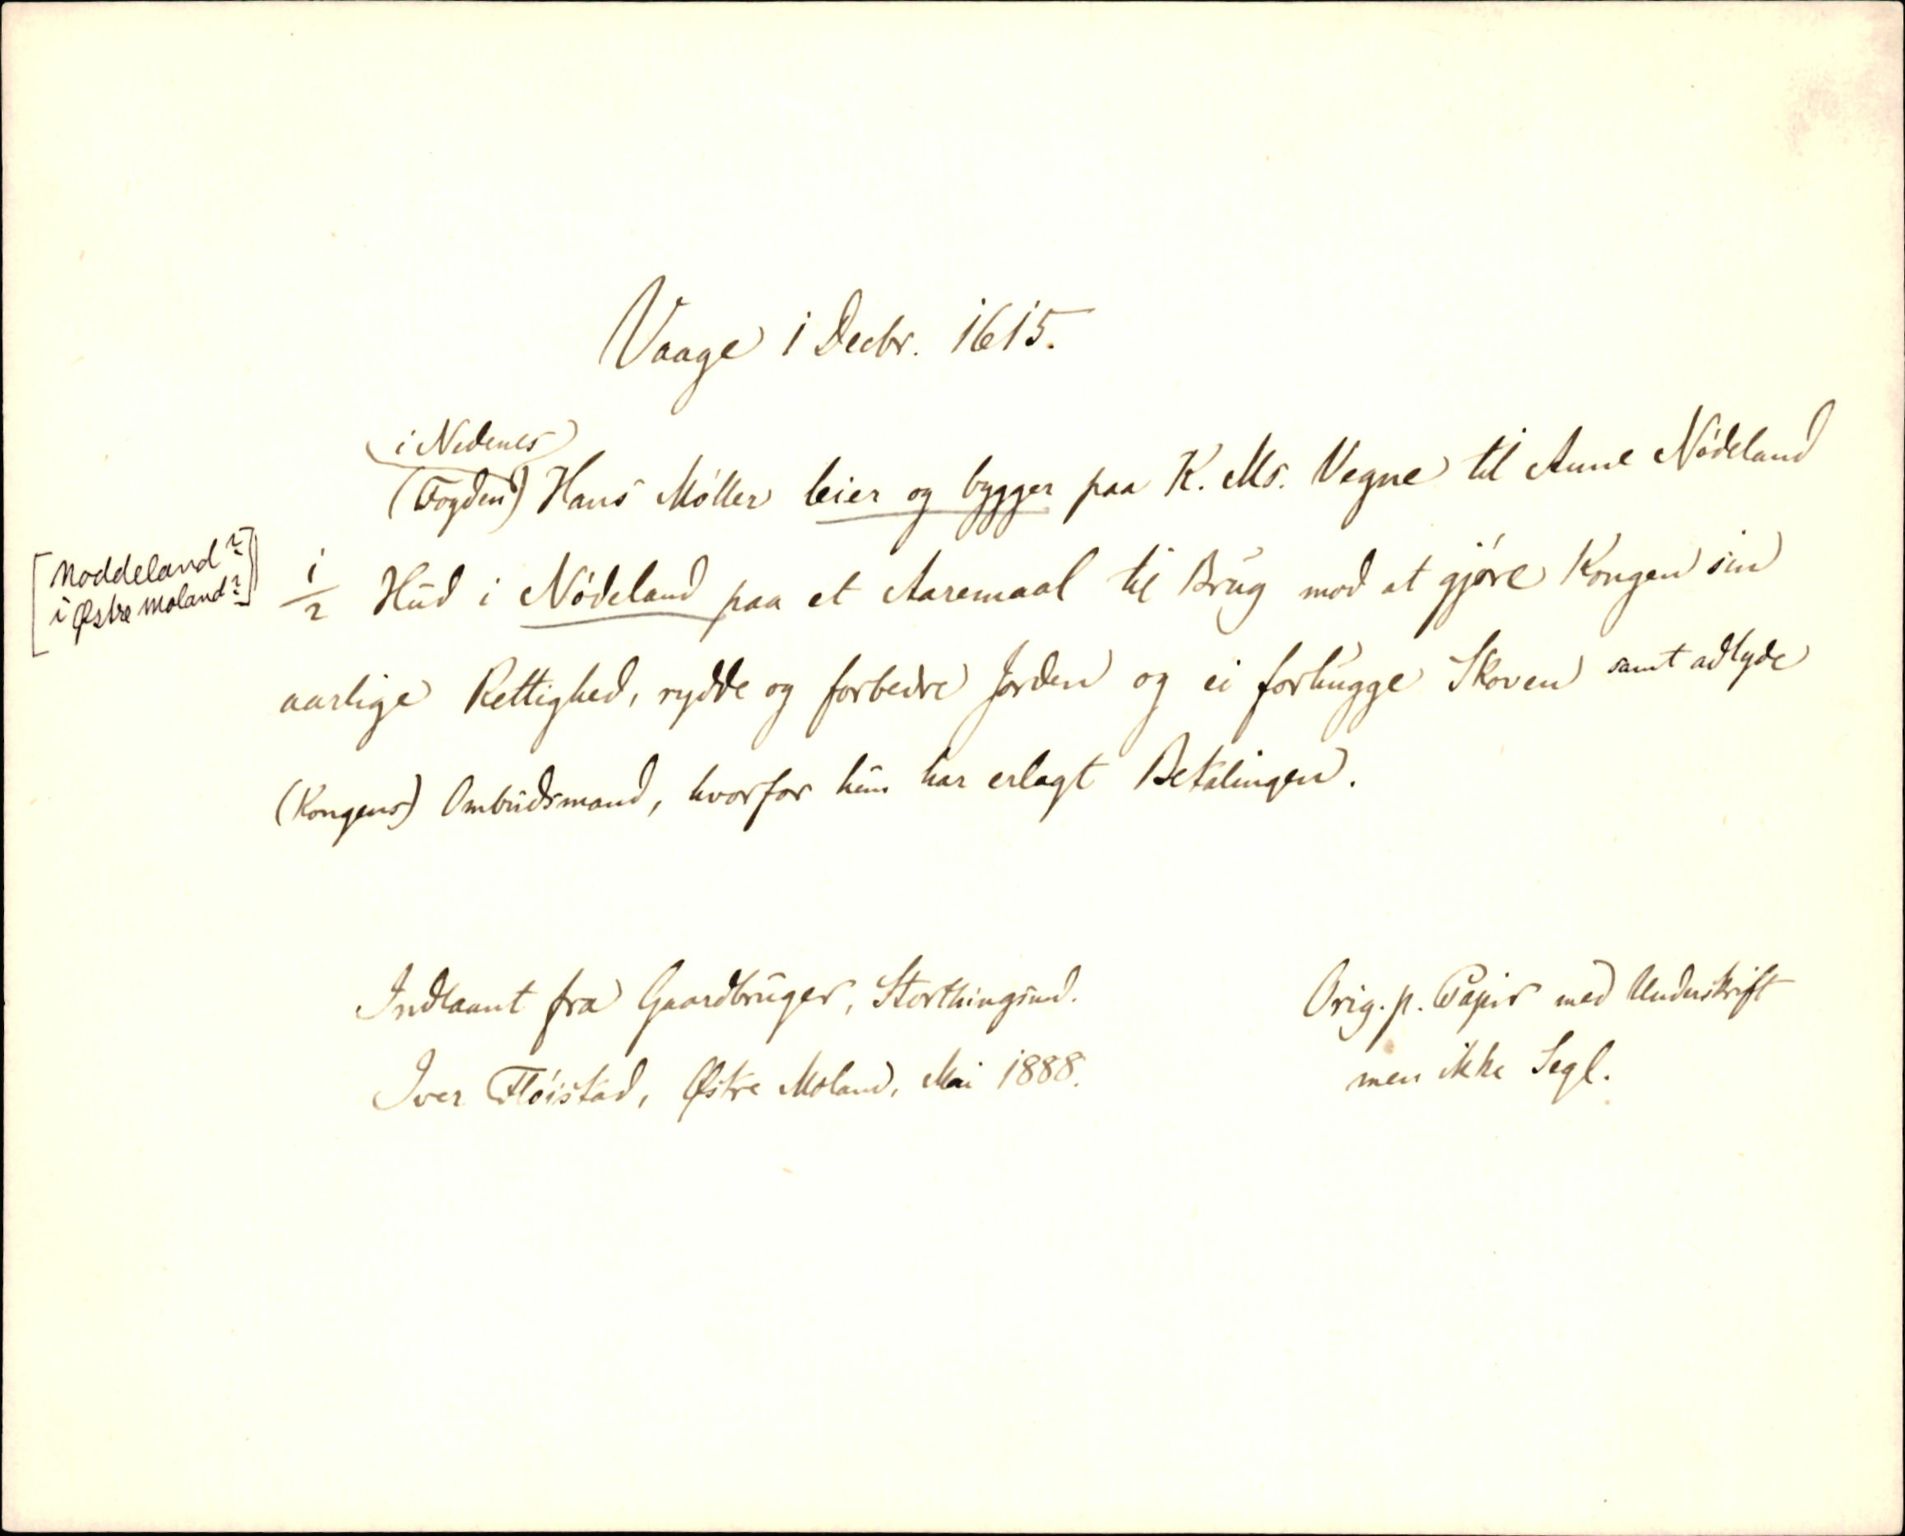 Vaage 1 Decbr. 1615.
(i Nedenes)
(Fogden) Hans Møller leier og bygger paa K. Ms. Vegne til Anne Nødeland
[Noddeland?]
i Østre Moland?]
1/2 Hud i Nødeland paa et Aaremaal til Brug mod at gjøre Kongen sin
aarlige Rettighed, rydde og forbedre Jorden og ei forhugge Skoven samt adlyde
(Kongens) Ombudsmand, hvorfor hun har erlagt Betalingen.
Indlaant fra Gaardbruger, Storthingsmd.
Iver Fløistad, Østre Moland, Mai 1888.
Orig. p. Papir med Underskrift
men ikke Segl.